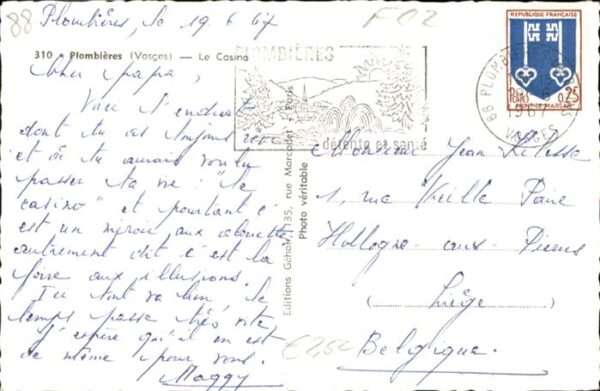 88
Plombières, le 19 6 67
F02
310 - Plombières (Vosges) — Le Casino
PLOMBIÈRES
détente et santé
RÉPUBLIQUE FRANÇAISE
0,25
1967
VOSGES
Cher papa,
Voici l'endroit
dont tu as toujours rêvé
et où tu aurais voulu
passer ta vie : "le
casino" et pourtant c'
est un miroir aux alouettes
autrement dit c'est la
foire aux illusions.
Ici tout va bien, le
temps passe très vite
J'espère qu'il en est
de même pour vous.
Maggy
Editions Géhair, 135, rue Marcadet - Paris
Photo véritable
Monsieur Jean
1, rue Vieille Paire
Hollogne-aux-Pierres
(Liège)
Belgique.
€2,50